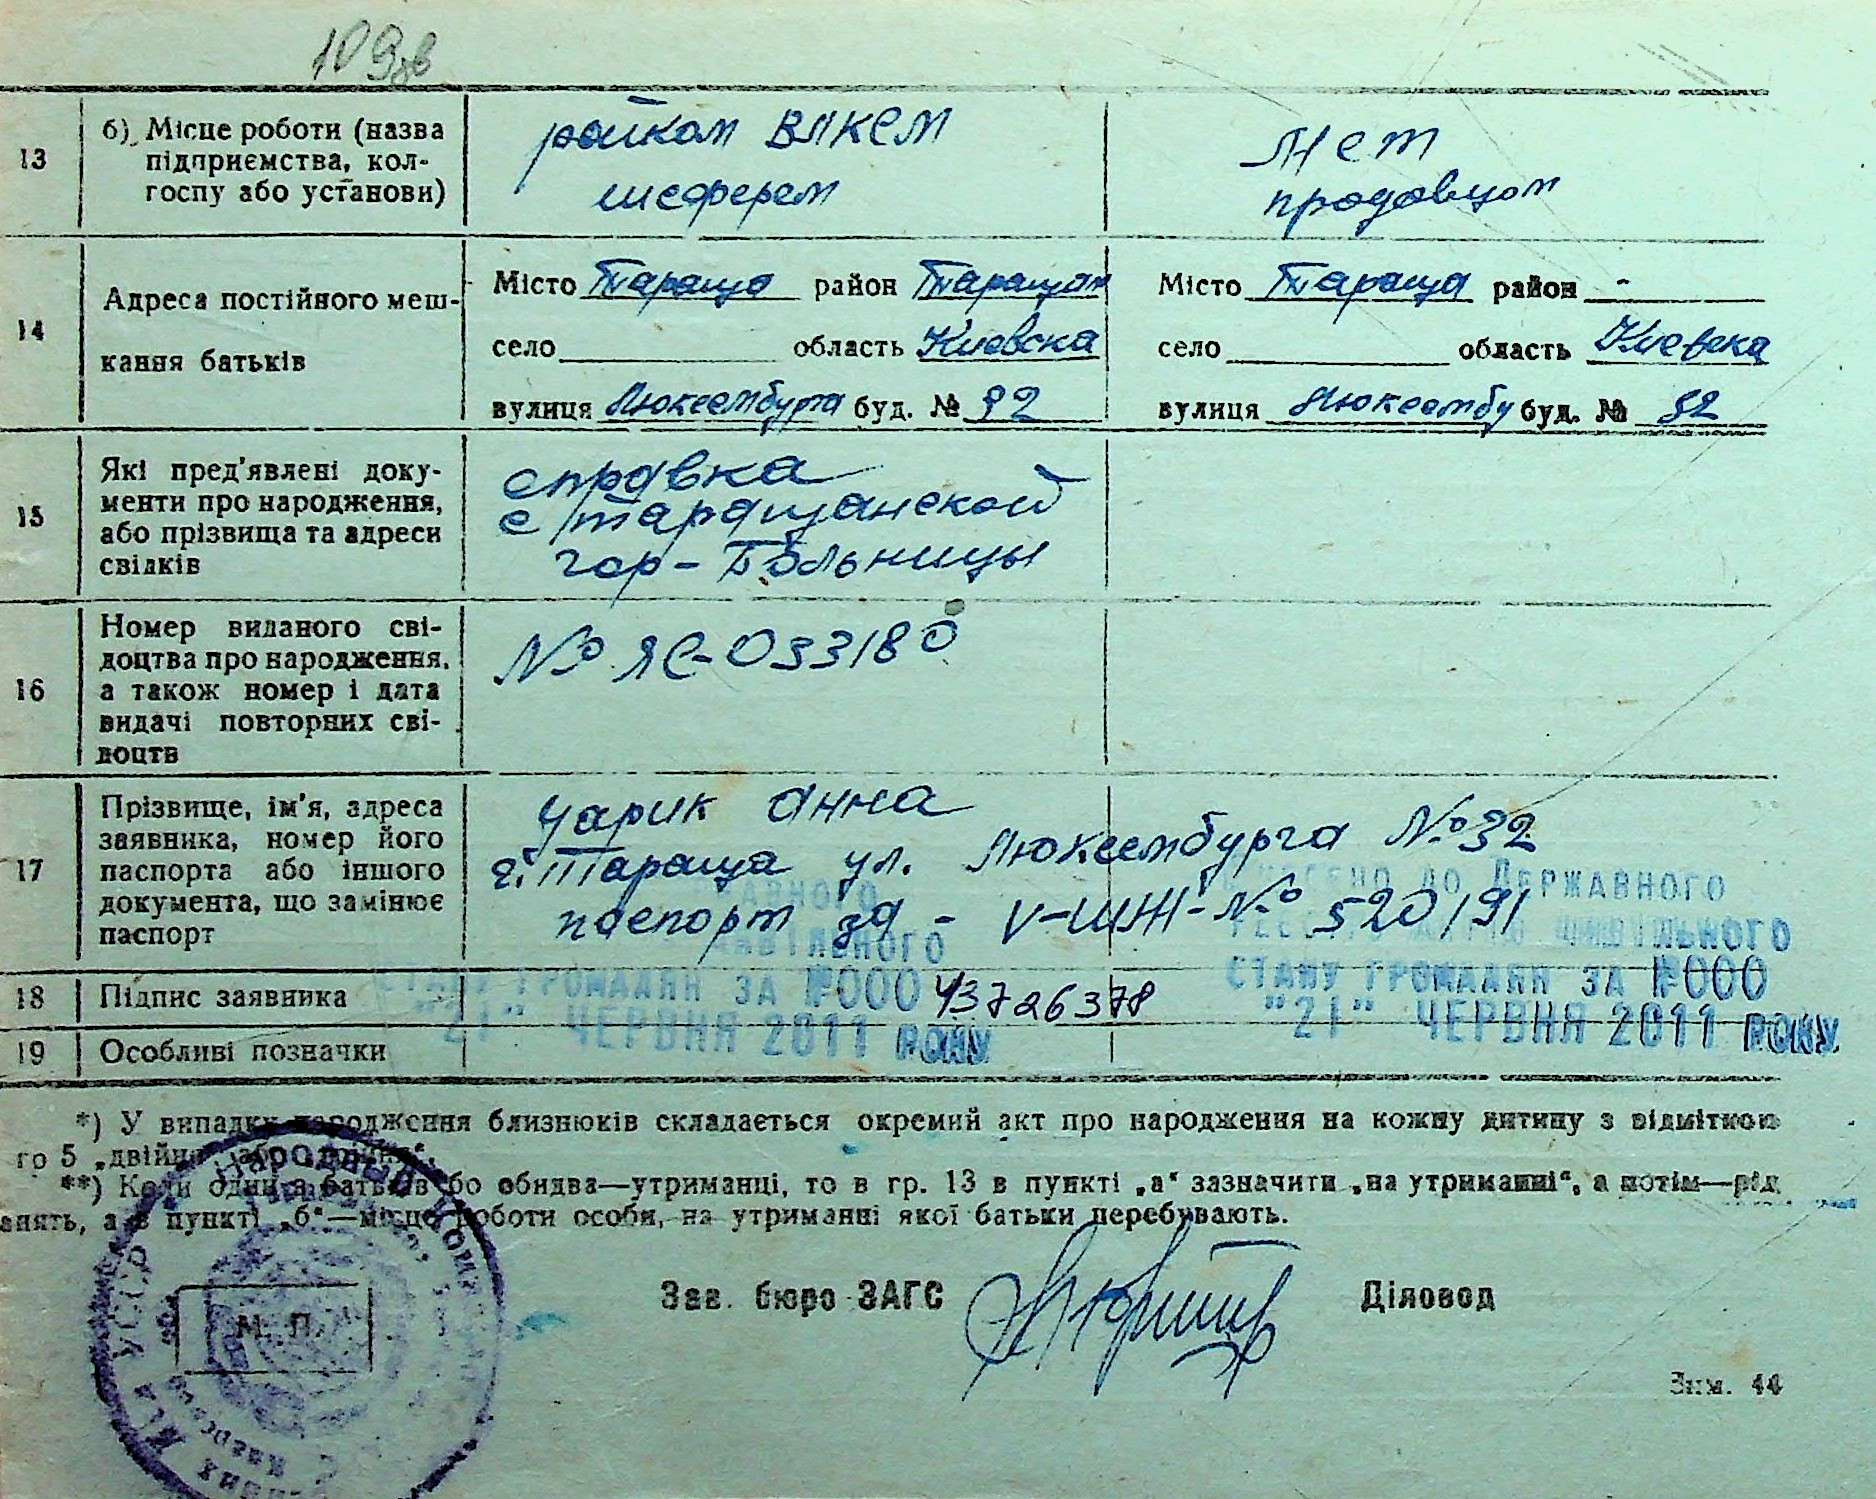 109зв
13
б) Місце роботи (назва
підприємства, кол-
госпу або установи)
райком ВЛКСМ
шофером
продавцом
14
Адреса постійного меш-
кання батьків
Місто Тараща район Таращан
село область Киевска
вулиця Люксембурга буд. № 32
Місто Тараща район -
село область Киевска
вулиця Люксембу буд. № 32
15
Які пред'явлені доку-
менти про народження,
або прізвища та адреси
свідків
справка
с Таращанской
гор-Больницы
16
Номер виданого сві-
доцтва про народження,
а також номер і дата
видачі повторних сві-
доцтв
№ ЯС-033180
17
Прізвище, ім'я, адреса
заявника, номер його
паспорта або іншого
документа, що замінює
паспорт
Царик Анна
г. Тараща ул. Люксембурга №32
паспорт - V-ШЖ-№ 520191
18
Підпис заявника
19
Особливі позначки
ДО ДЕРЖАВНОГО
ЦИВІЛЬНОГО
СТАНУ ГРОМАДЯН ЗА №000
"21" ЧЕРВНЯ 2011 РОКУ
СТАНУ ГРОМАДЯН ЗА №000 43726378
"21" ЧЕРВНЯ 2011 РОКУ
*) У випадку народження близнюків складається окремий акт про народження на кожну дитину з відміткою
гр 5 „двійня" або
**) Коли один з батьків бо обидва—утриманці, то в гр. 13 в пункті „а" зазначити „на утриманні", а потім—рід
анять, а в пункті „б"—місце роботи особи, на утриманні якої батьки перебувають.
УССР
М. П.
Зав. бюро ЗАГС
Діловод
Зам. 44